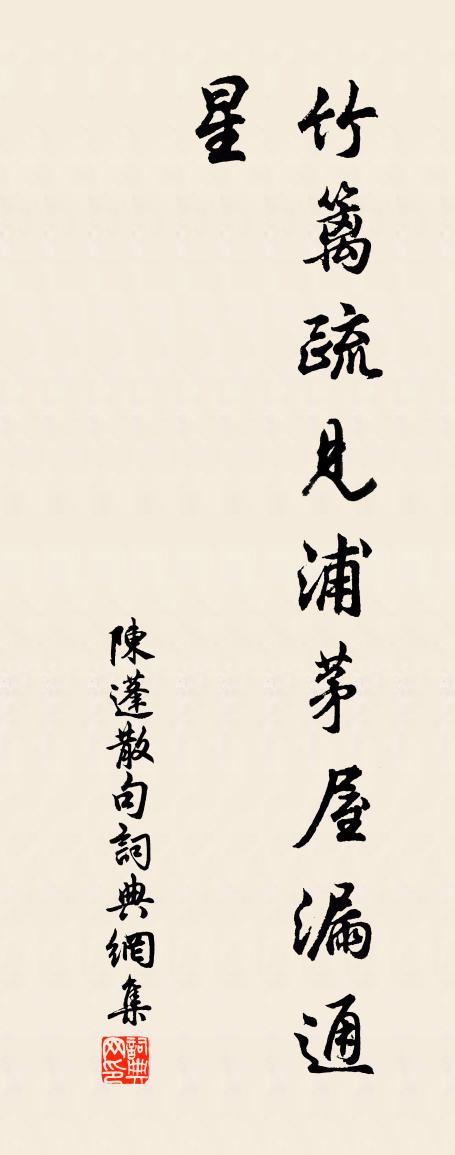 竹篱疏見浦茅屋漏通
星
陳蓬散句詞典網集
詞典网印